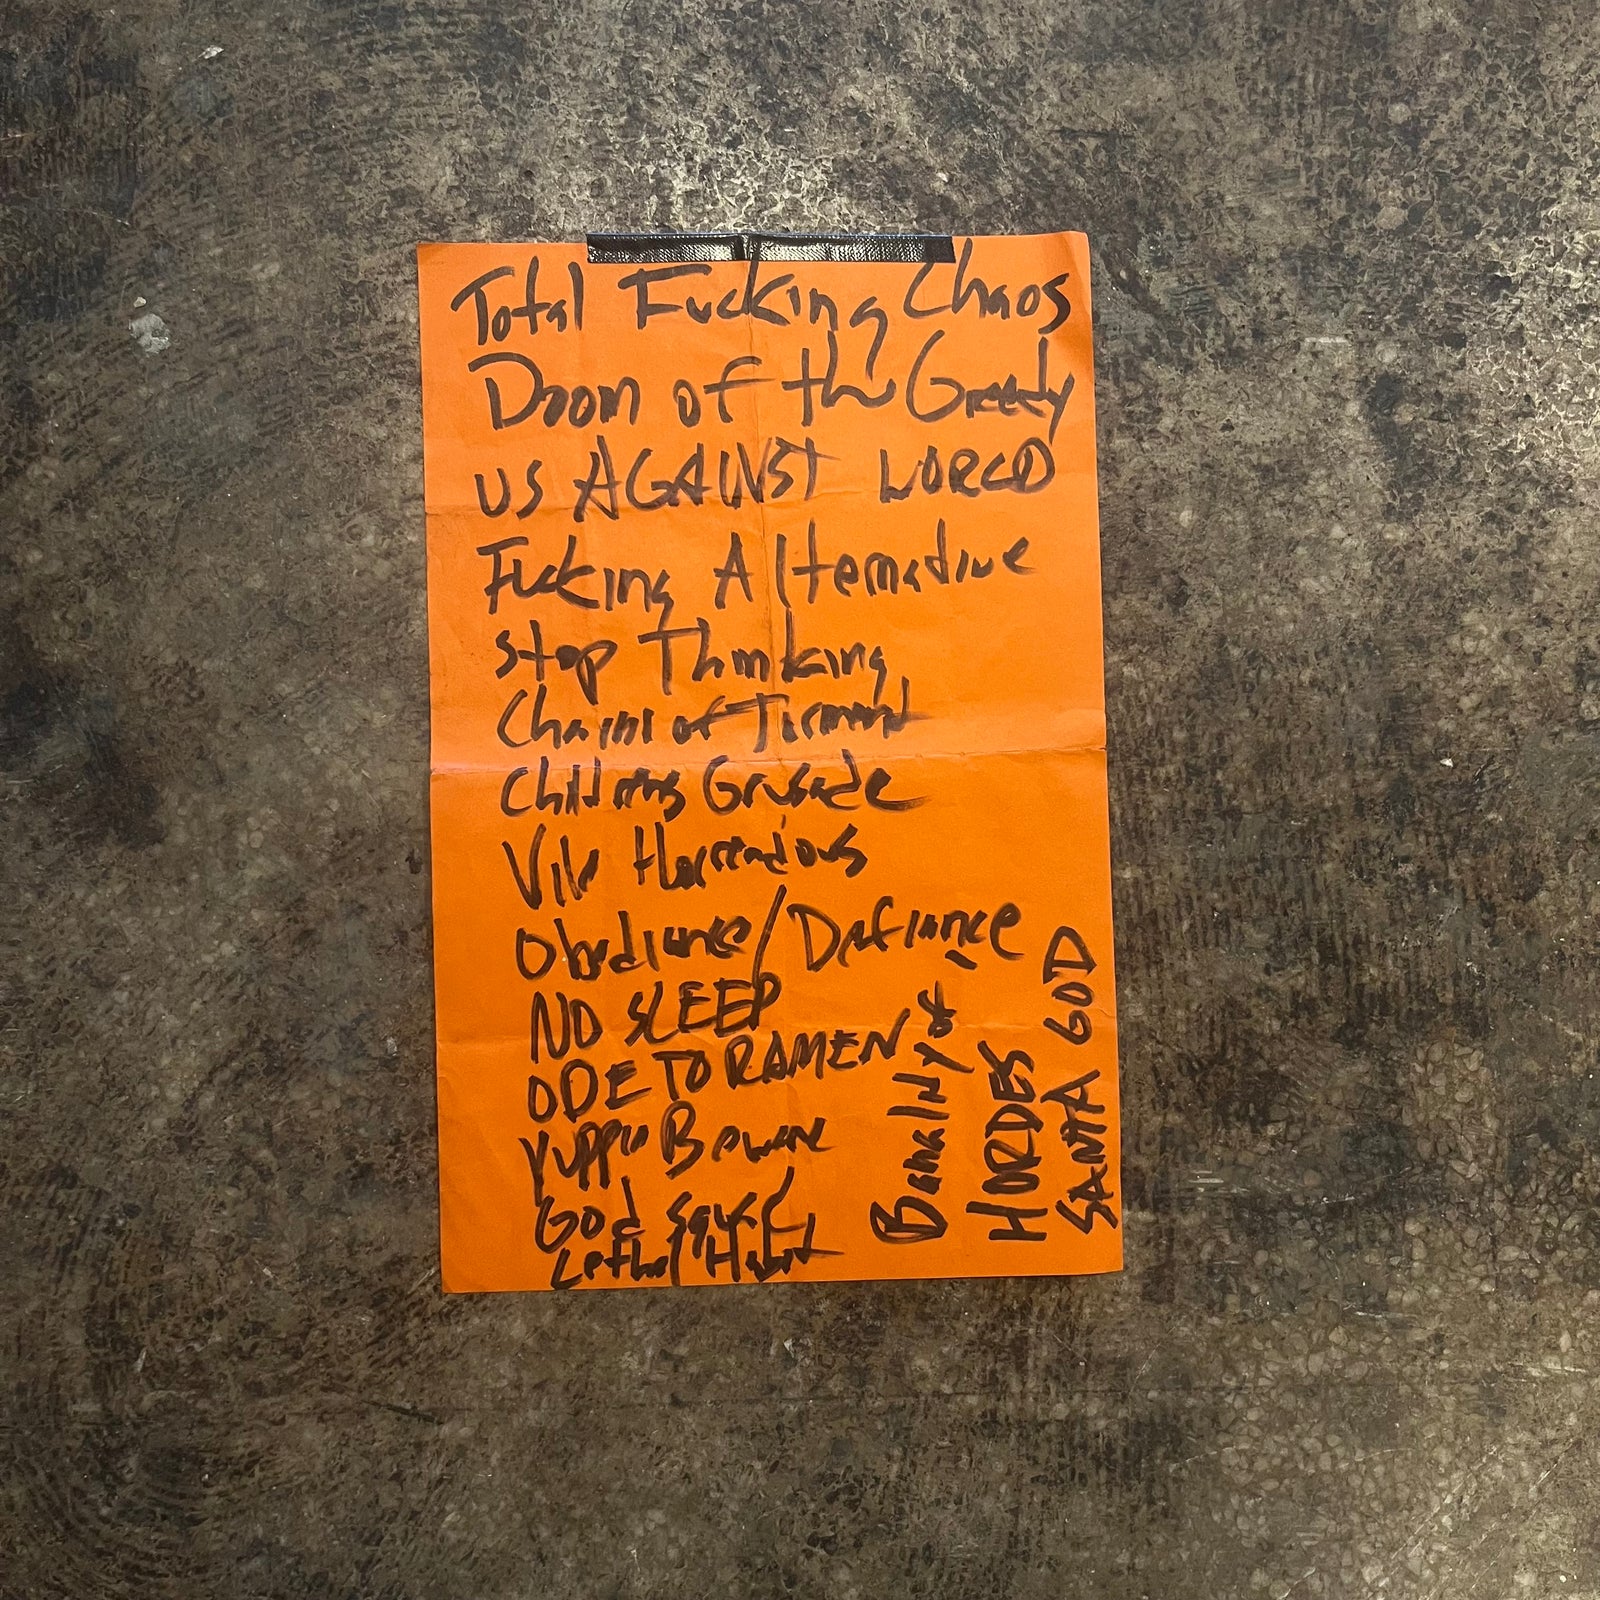 Total Fucking Chaos
Doom of the Greedy
US AGAINST WORLD
Fucking Alternative
Stop Thinking
Chains of Torment
Childrens Crusade
Vile Horrendous
Obediance/Defiance
NO SLEEP
ODE TO RAMEN
Yuppie Beware
God Squad
Lethal Habit
Banality of
HORDES
SANTA GOD